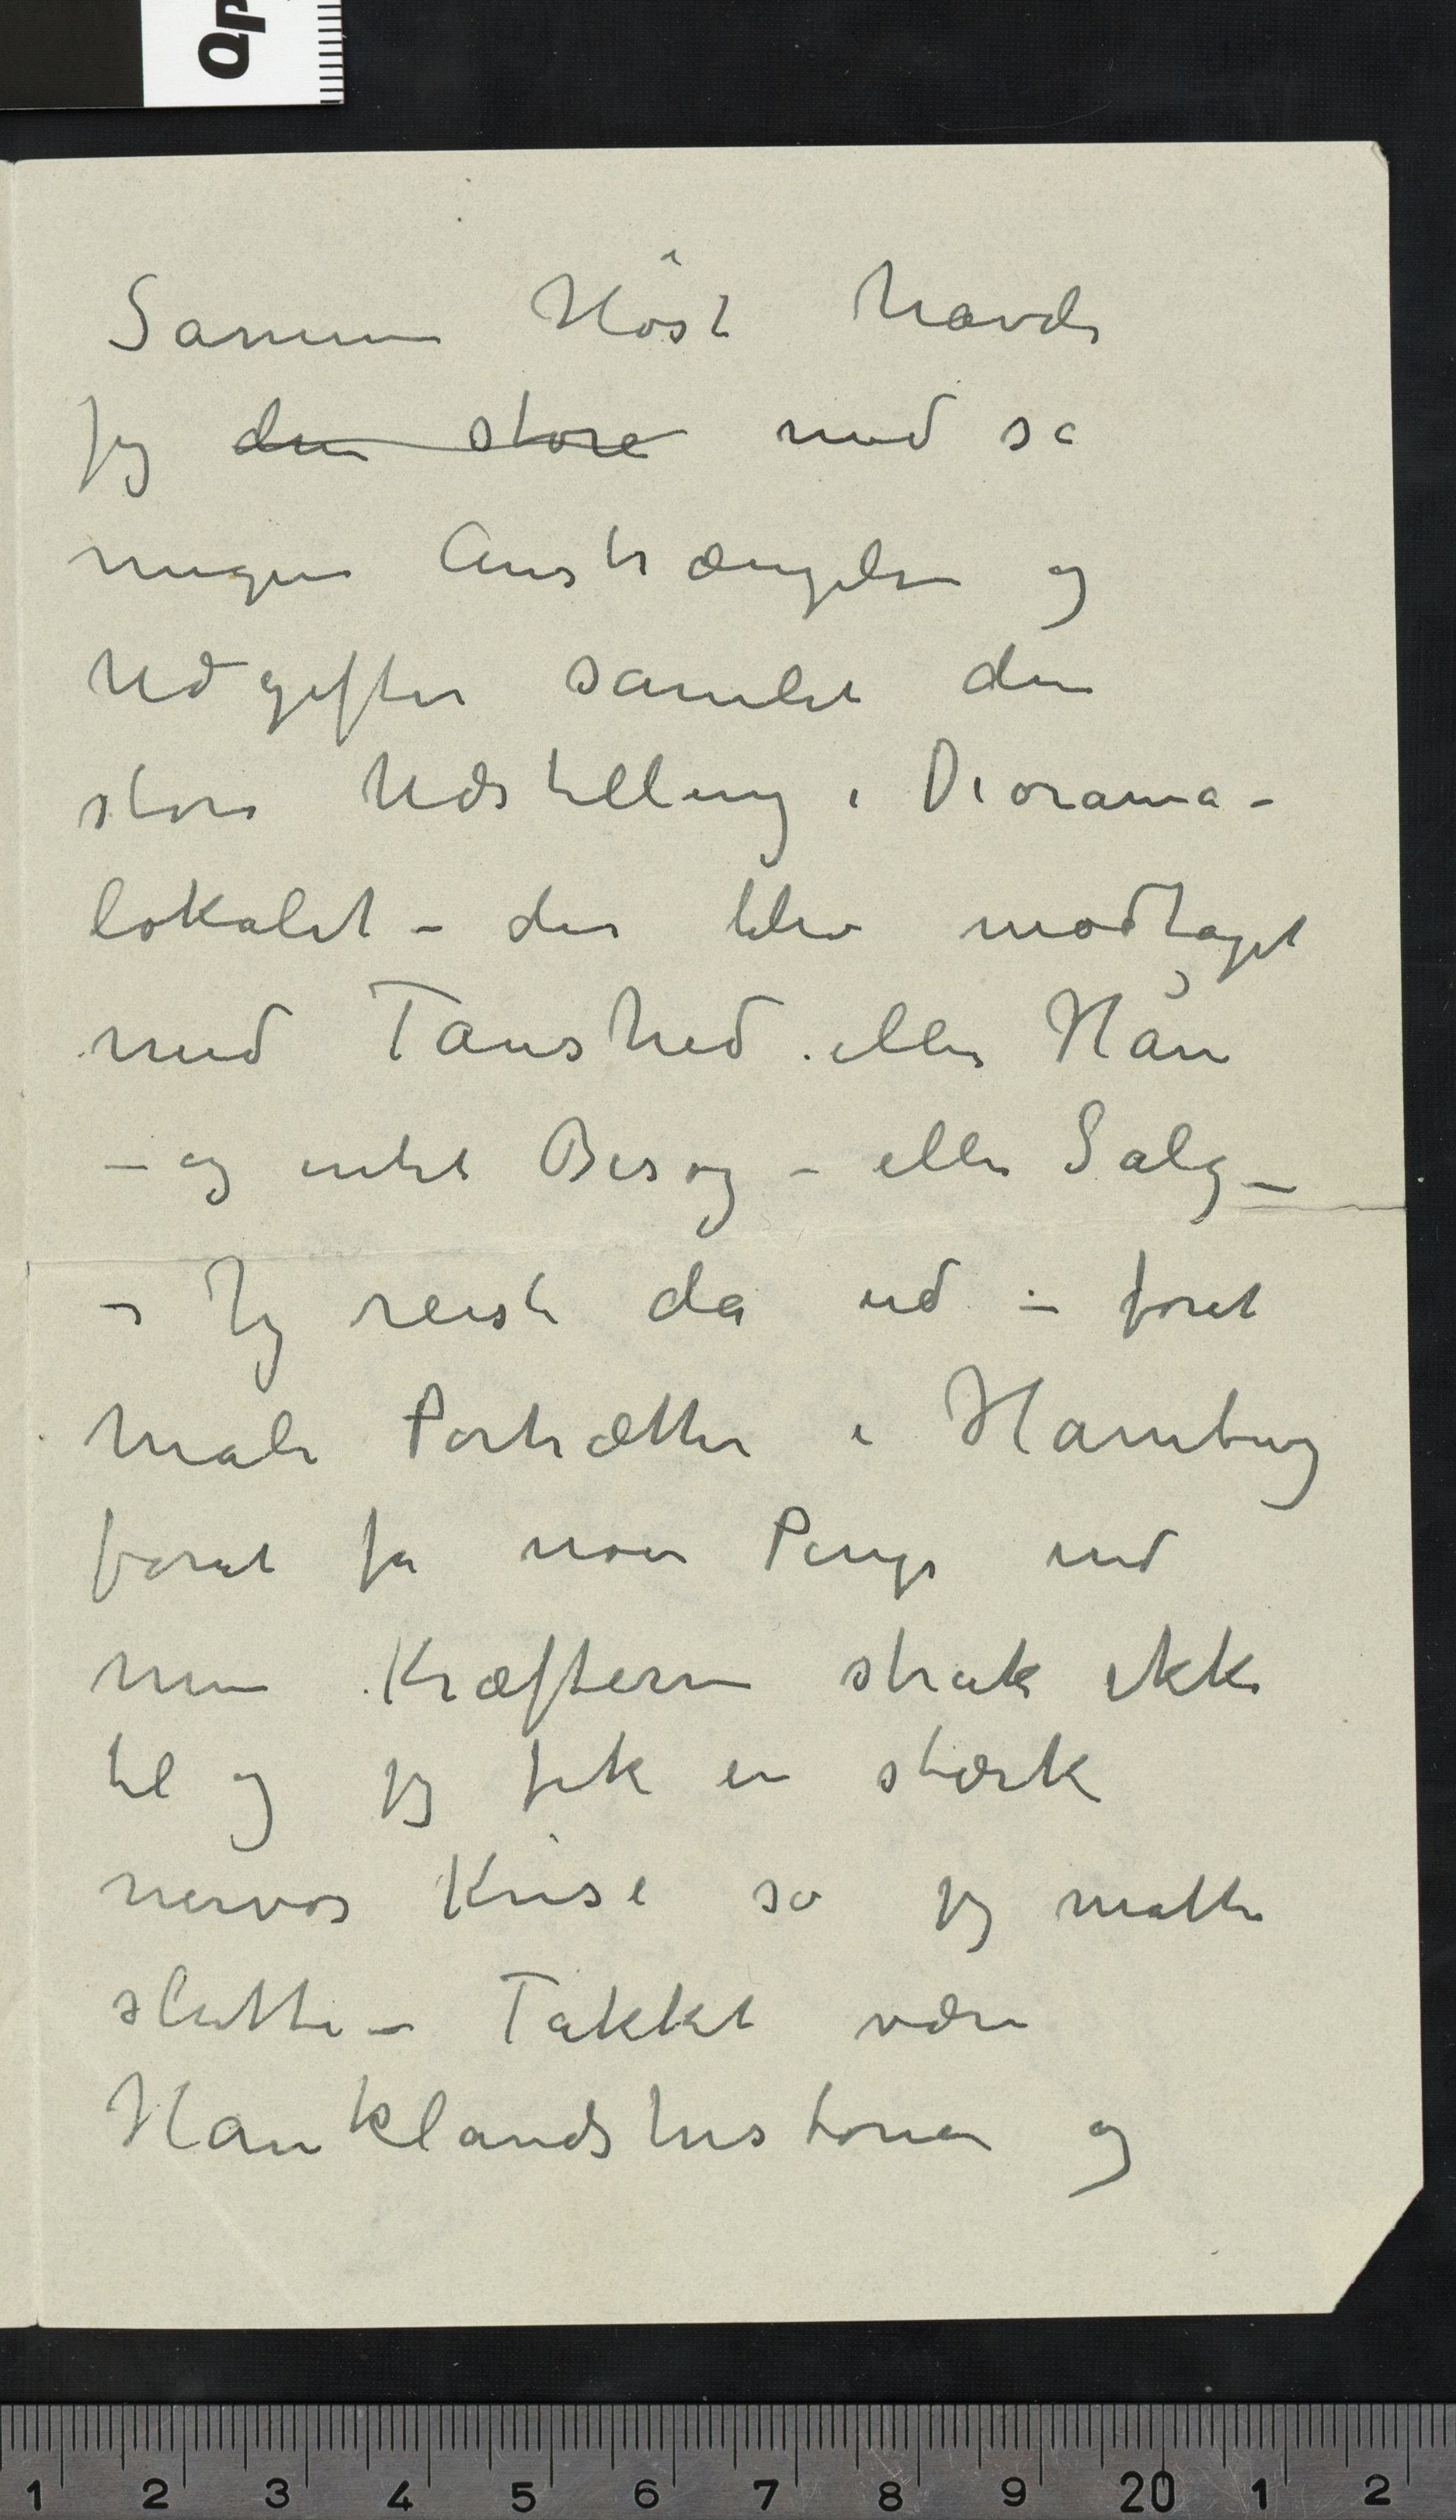 Qp
Samme Høst havde
jeg den store med så
megen Anstrængelse og
Udgifter samlet den
store Udstilling i Diorama-
lokalet – den blev modtaget
med Taushed eller Hån
– og intet Besøg – eller Salg –
– Jeg reiste da ud – forat
male Portrætter i Hamburg
forat få noen Penge ind
men Kræfterne strak ikke
til og jeg fik en stærk
nervøs Krise så jeg måtte
slutte – Takket være
Hauklandshistorien og
1 2 3 4 5 6 7 8 9 20 1 2